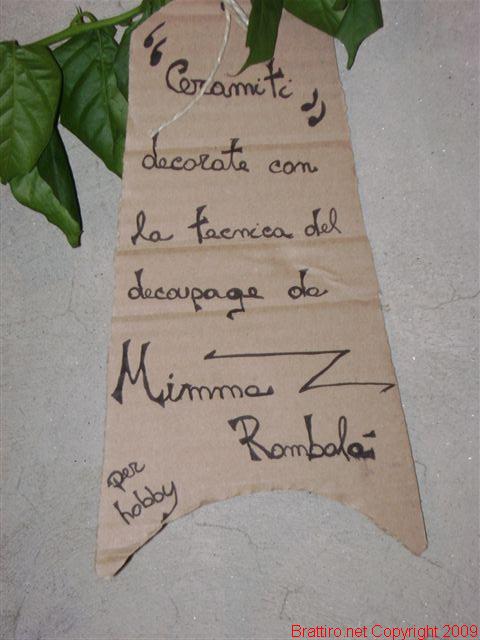 "Ceramiti"
decorate con
la tecnica del
decoupage da
Mimma
Rombolà
per
hobby
Brattiro.net Copyright 2009